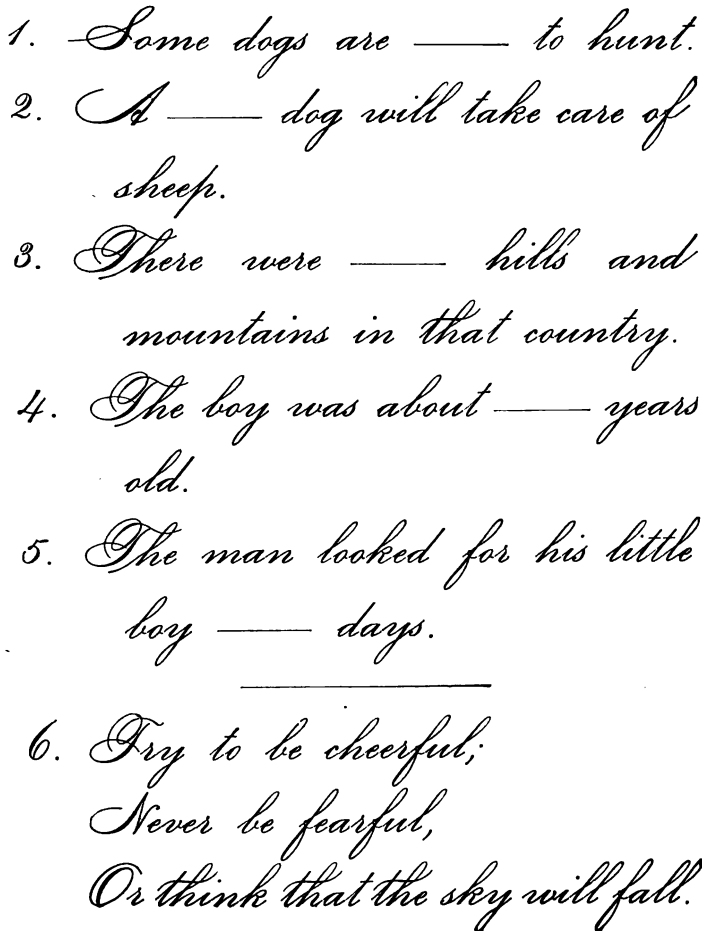 1. Some dogs are —— to hunt.
2. A —— dog will take care of
sheep.
3. There were —— hills and
mountains in that country.
4. The boy was about —— years
old.
5. The man looked for his little
boy —— days.
6. Try to be cheerful;
Never be fearful,
Or think that the sky will fall.